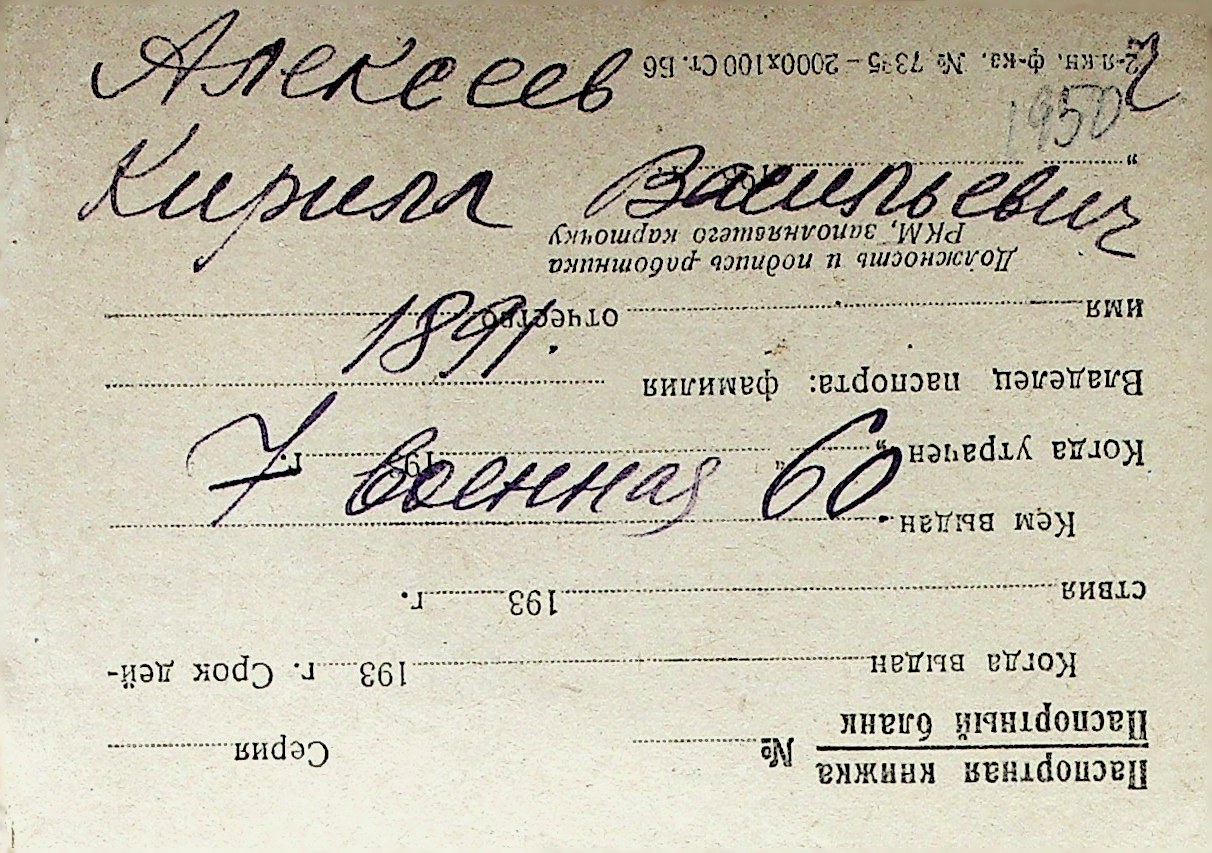 Алексеев
Кирилл Васильевич
1891.
7 военная 60.
1950
Паспортная книжка
Паспортный бланк
№ Серия
Когда выдан 193 г. Срок дей-
ствия 193 г.
Кем выдан
Когда утрачен „ “ 193 г.
Владелец паспорта: фамилия
имя отчество
Должность и подпись работника
РКМ, заполнявшего карточку
2-я кн. ф-ка. № 7335 – 2000х100 Ст. Б6